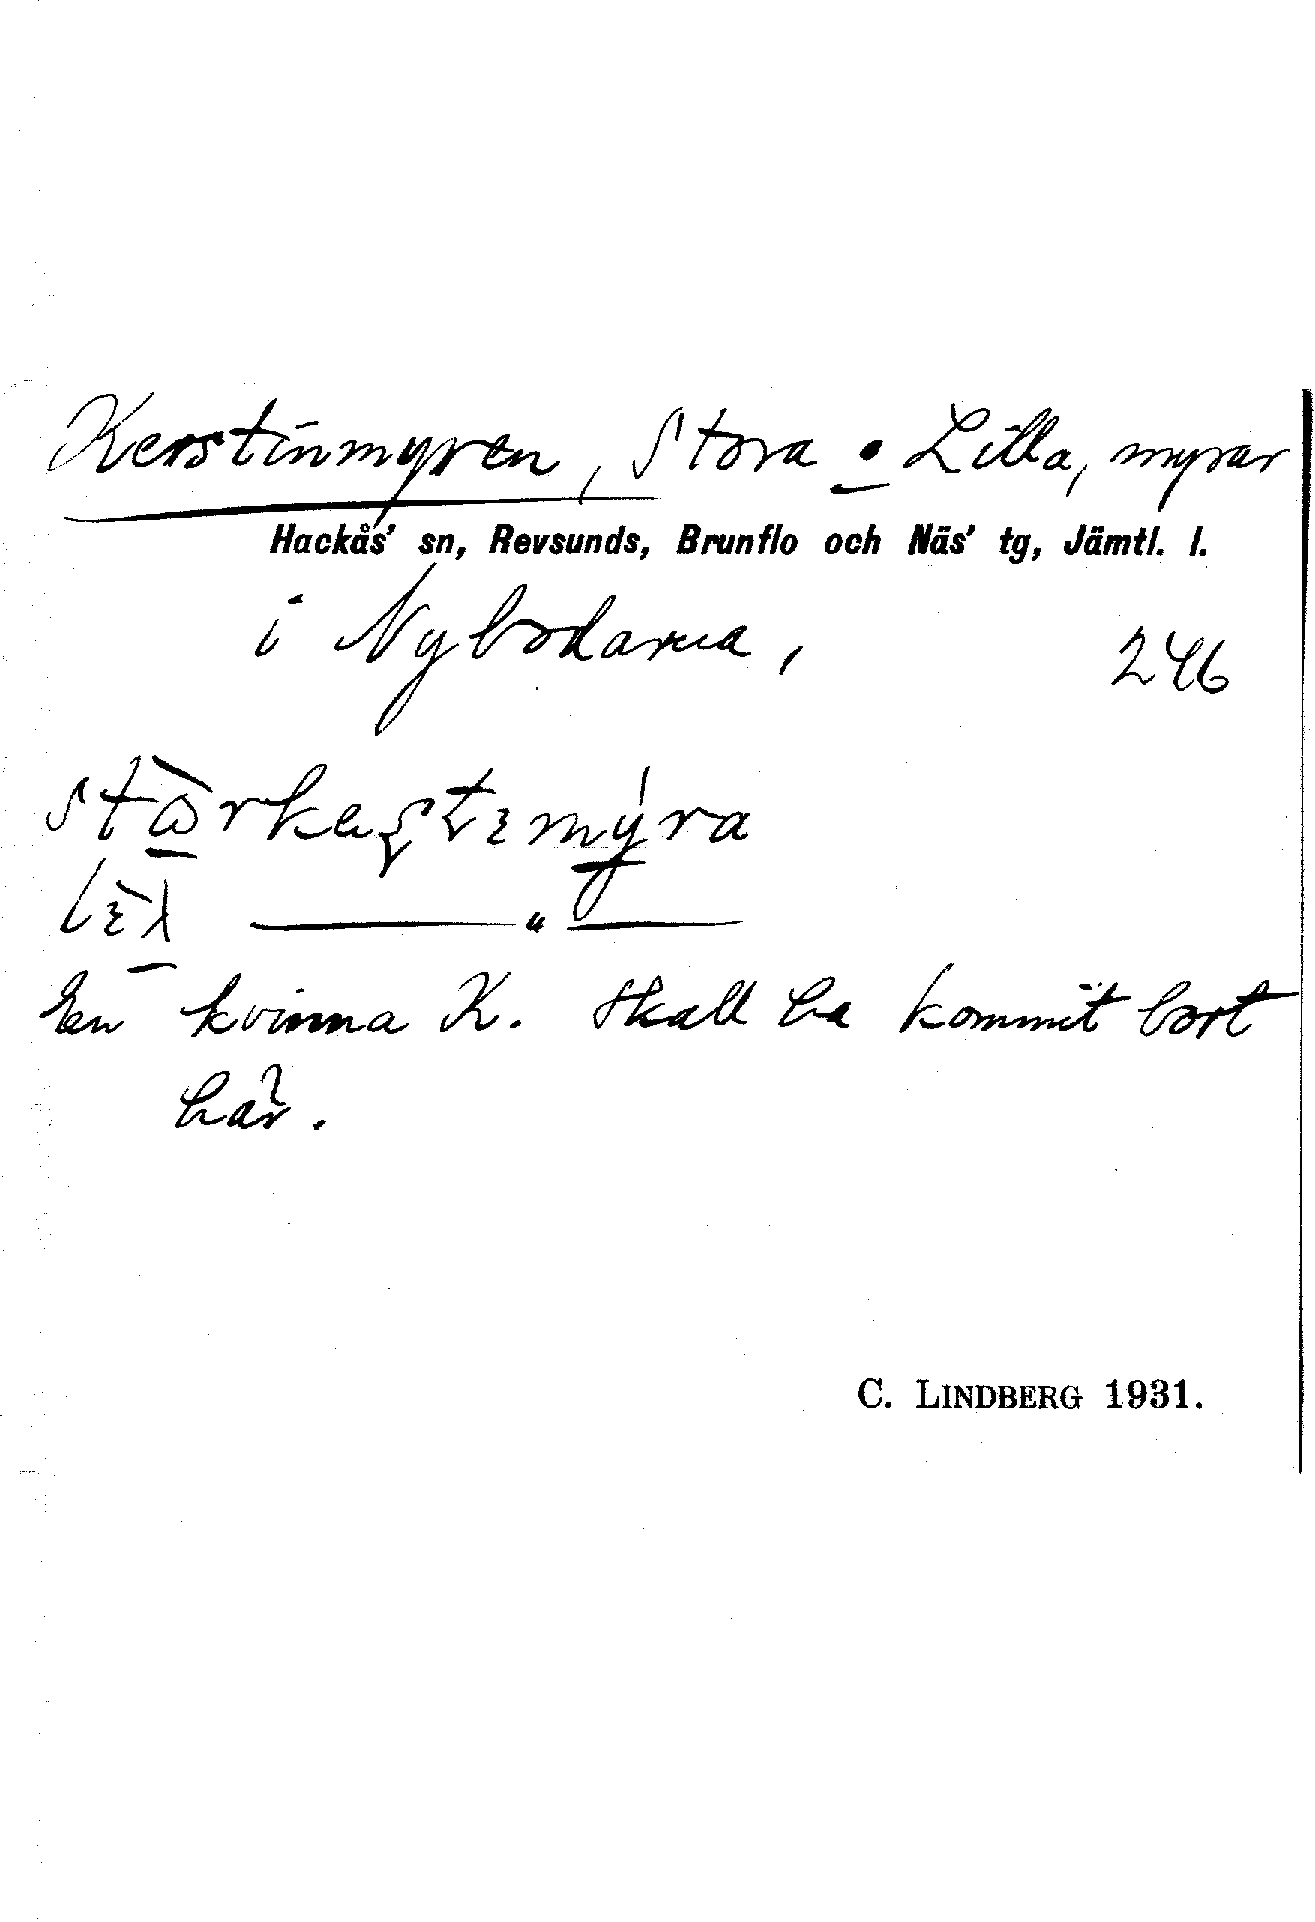 Kerstinmyren, Stora o Lilla, myrar
Hackås' sn, Revsunds, Brunflo och Näs' tg, Jämtl. l.
i Nybodarna,
246
En kvinna K. skall ha kommit bort
här.
C. LINDBERG 1931.